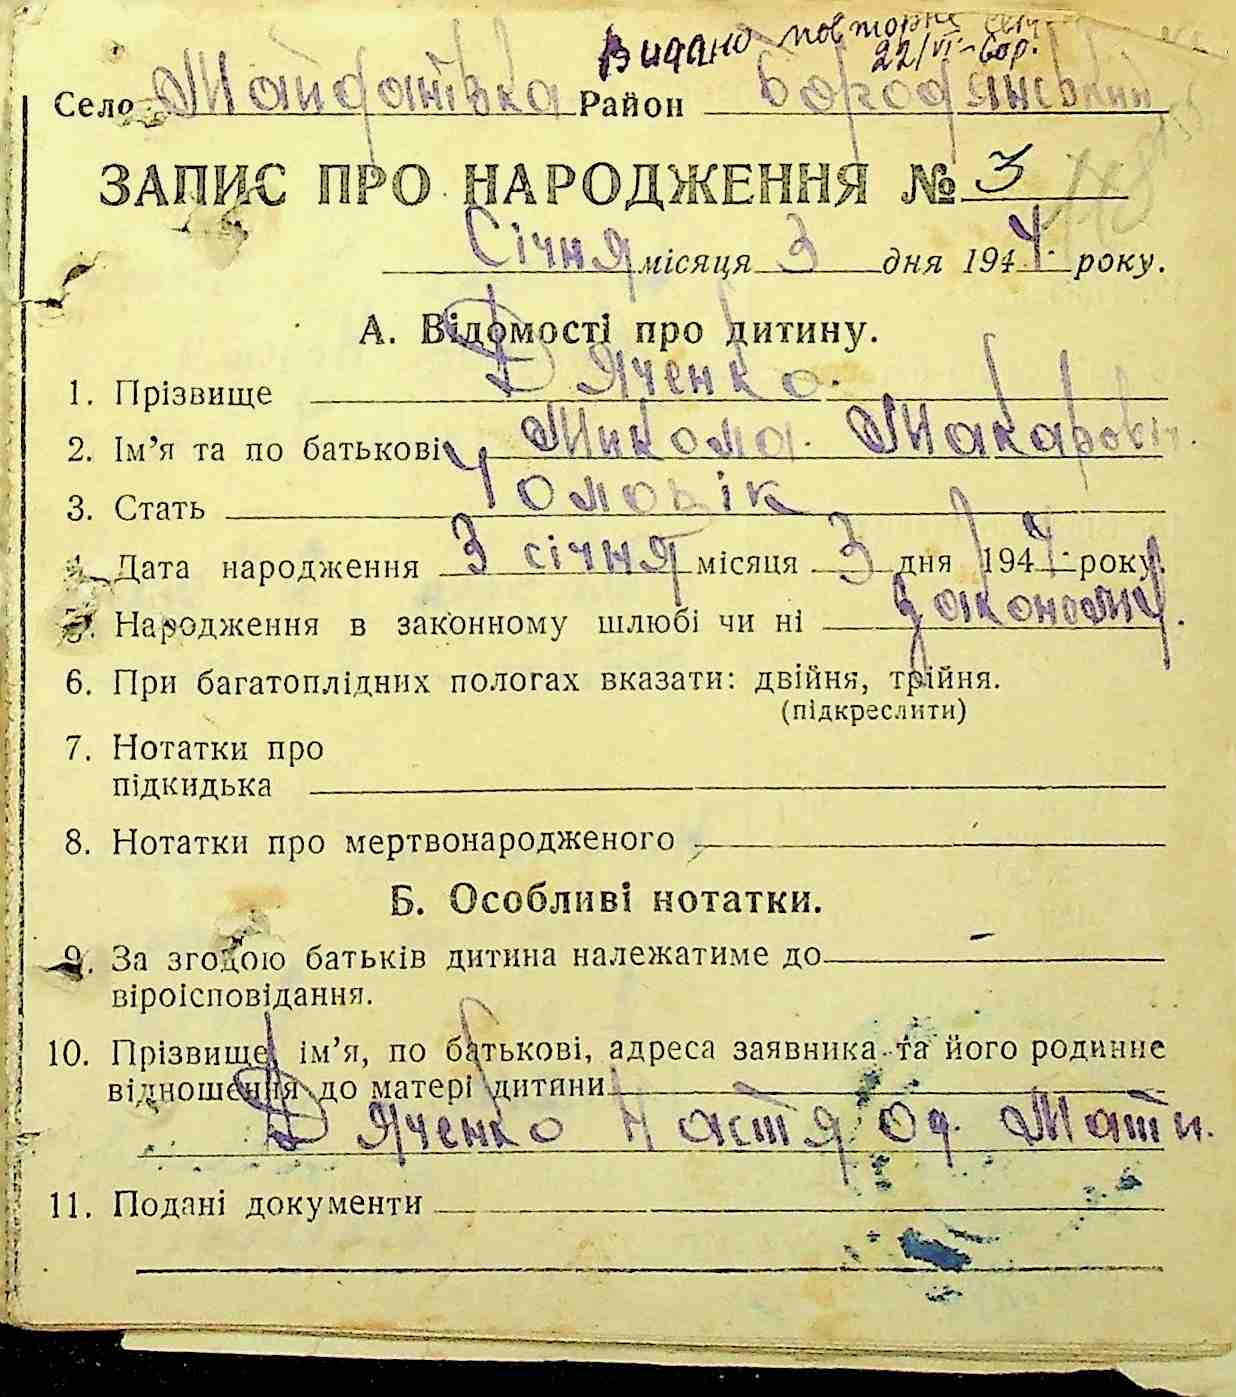 Видано повторне
22/VI-
Село Майданівка Район Бородянський
ЗАПИС ПРО НАРОДЖЕННЯ № 3
Січня місяця 3 дня 1944 року.
А. Відомості про дитину.
1. Прізвище Дяченко
2. Ім’я та по батькові Микола Макарович
3. Стать Чоловік
4. Дата народження 3 січня місяця 3 дня 1944 року.
5. Народження в законному шлюбі чи ні законому.
6. При багатоплідних пологах вказати: двійня, трійня.
(підкреслити)
7. Нотатки про
підкидька
8. Нотатки про мертвонародженого
Б. Особливі нотатки.
9. За згодою батьків дитина належатиме до —
віроісповідання.
10. Прізвище, ім’я, по батькові, адреса заявника та його родинне
відношення до матері дитини
Дяченко Настя Од. Мати.
11. Подані документи